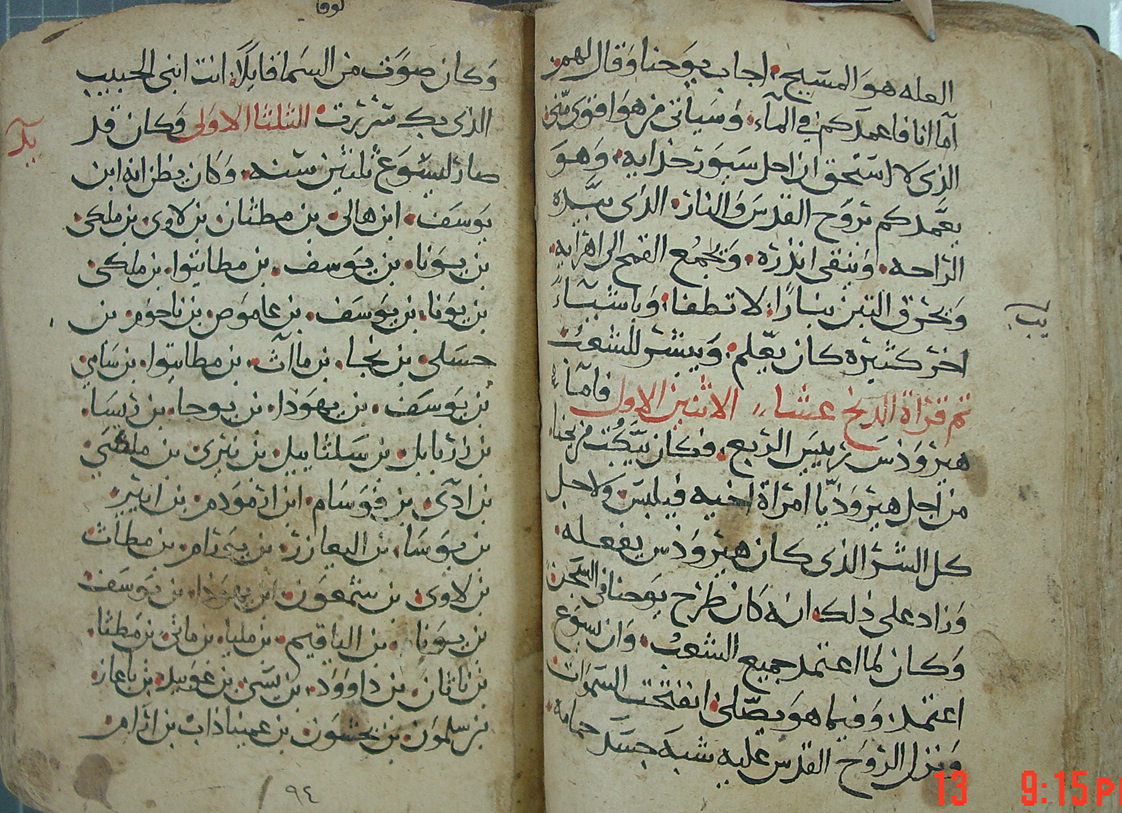 العله هو المسيح. اجاب يوحنا وقال لهم.
اما انا فاعمدكم في الماء. وسياتي من هو اقوى منى
الذى لا استحق ان احل سيور حذايه. وهو
يعمدكم بروح القدس والنار. الذى بيده
الراحه. وينقى اندره. ويجمع القمح الى اهرايه.
ويحرق التبن بنارًا لا تطفا. وباشياءً
اخر كثيره كان يعلم. ويبشر للشعب
تم قراة الدنح عشا الاثنين الاول فاما
هيرودس رييس الربع. وكان يبكت من يوحنا
من اجل هيروديا امراة اخيه فيلبس. ولاجل
كل الشر الذى كان هيرودس يفعله.
وزاد على ذلك انه كان طرح يوحنا في السجن
وكان لما اعتمد جميع الشعب. وان يسوع
اعتمد. وفيما هو يصلى انفتحت السموات
ونزل الروح القدس عليه شبه جسد حمامه.
يب
لوقا
وكان صوت من السما قايلا. انت ابنى الحبيب
الذى بك سررت. الثلثا الاولى وكان قد
يد
صار ليسوع ثلثين سنه. وكان يظن انه ابن
يوسف. ابن هالى. بن مطثان. بن لاوى. بن ملكى
بن يونا. بن يوسف. بن مطاتيوا. بن ملكى
بن يونا. بن يوسف. بن عاموص. بن ناحوم. بن
حسلى. بن نجا. بن مااث. بن مطاتيوا. بن سامى
بن يوسف. بن يهودا. بن يوحا. بن رسا.
بن زربابل. بن سلثاييل. بن نيرى. بن ملخى
بن ادى. بن قوسام. ابن ادمودم. بن ايير
بن يوسا. بن اليعازر. بن يورام. بن مطاث
بن لاوى. بن شمعون. ابن يهودا. بن يوسف
بن يونا. بن الياقيم. بن مليا. بن مانى. بن مطثا.
بن ناثان. بن داوود. بن يسى. بن عوبيد. بن باعاز
بن سلمون. بن نحشون. بن عميناداب. بن ارام.
٩٤
13 9:15 PM